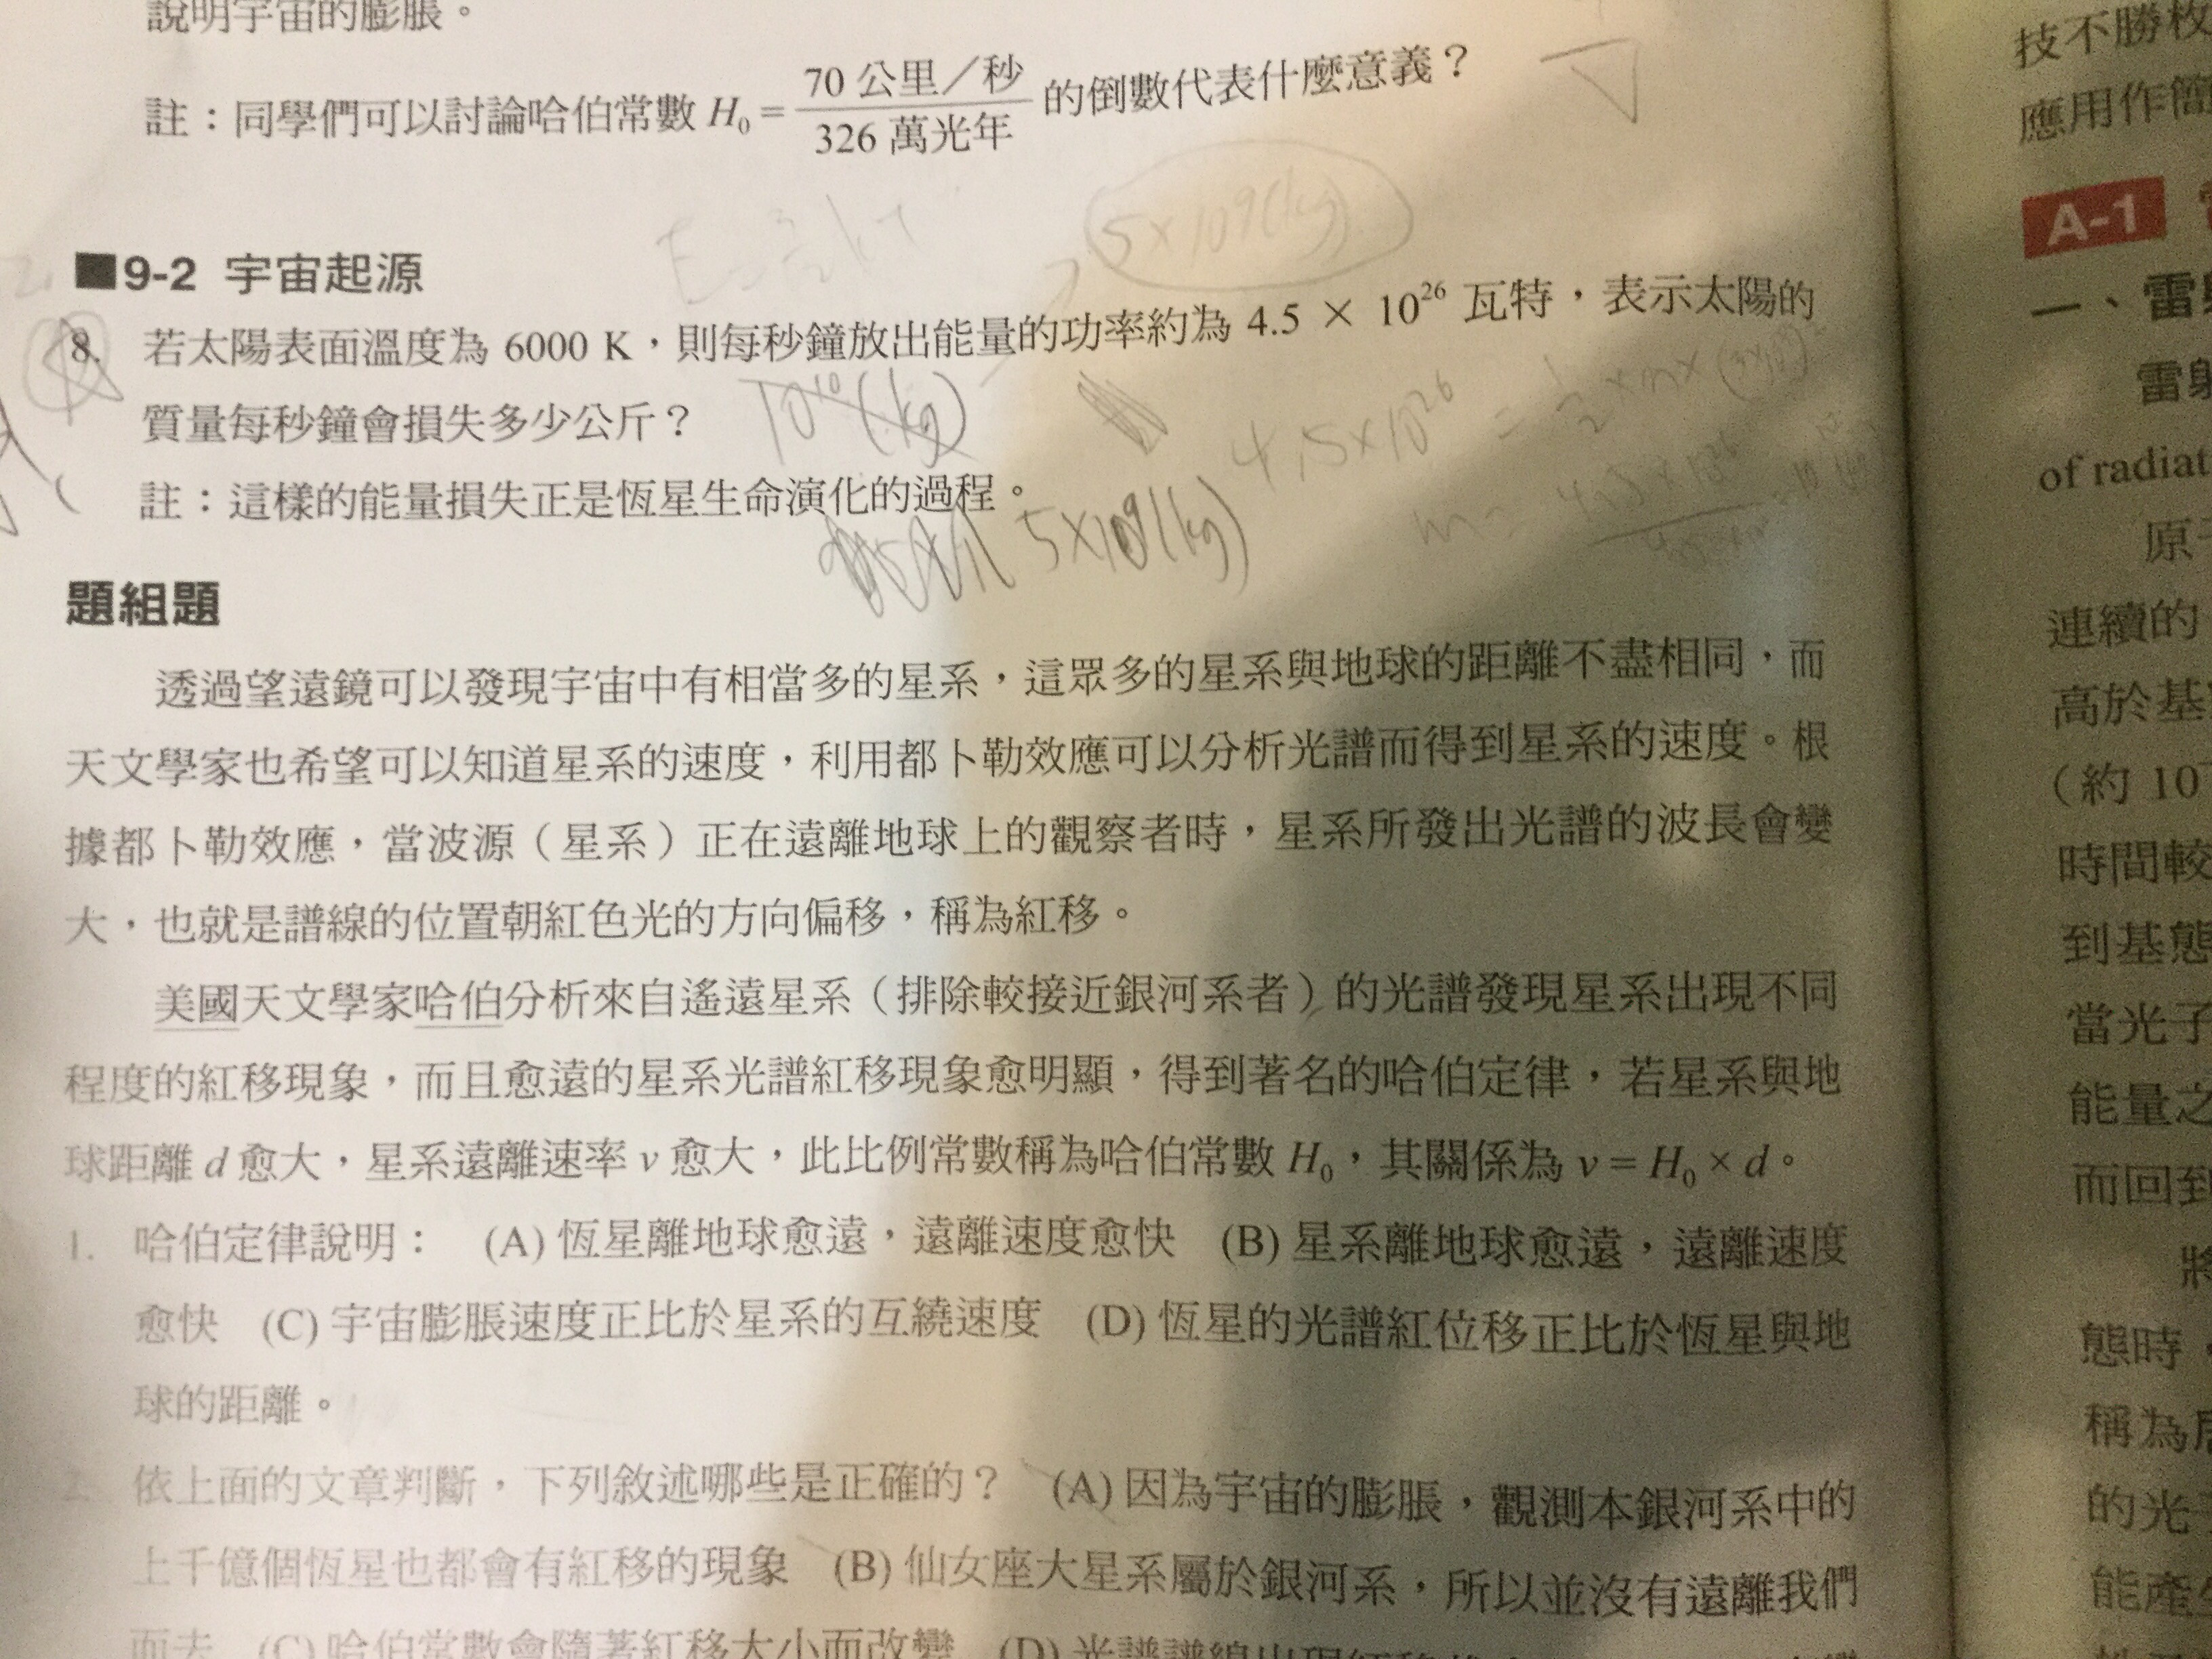 說明宇宙的膨脹。
註：同學們可以討論哈伯常數 H₀ = 70 公里／秒 / 326 萬光年 的倒數代表什麼意義？
5×10⁹(kg)
■9-2 宇宙起源
8. 若太陽表面溫度為 6000 K，則每秒鐘放出能量的功率約為 4.5 × 10²⁶ 瓦特，表示太陽的
質量每秒鐘會損失多少公斤？
10¹⁰(kg)
4.5×10²⁶ =
註：這樣的能量損失正是恆星生命演化的過程。
5×10⁹(kg)
題組題
透過望遠鏡可以發現宇宙中有相當多的星系，這眾多的星系與地球的距離不盡相同，而
天文學家也希望可以知道星系的速度，利用都卜勒效應可以分析光譜而得到星系的速度。根
據都卜勒效應，當波源（星系）正在遠離地球上的觀察者時，星系所發出光譜的波長會變
大，也就是譜線的位置朝紅色光的方向偏移，稱為紅移。
美國天文學家哈伯分析來自遙遠星系（排除較接近銀河系者）的光譜發現星系出現不同
程度的紅移現象，而且愈遠的星系光譜紅移現象愈明顯，得到著名的哈伯定律，若星系與地
球距離 d 愈大，星系遠離速率 v 愈大，此比例常數稱為哈伯常數 H₀，其關係為 v = H₀ × d。
1. 哈伯定律說明： (A) 恆星離地球愈遠，遠離速度愈快 (B) 星系離地球愈遠，遠離速度
愈快 (C) 宇宙膨脹速度正比於星系的互繞速度 (D) 恆星的光譜紅位移正比於恆星與地
球的距離。
2. 依上面的文章判斷，下列敘述哪些是正確的？ (A) 因為宇宙的膨脹，觀測本銀河系中的
上千億個恆星也都會有紅移的現象 (B) 仙女座大星系屬於銀河系，所以並沒有遠離我們
而去 (C) 哈伯常數會隨著紅移大小而改變 (D) 光譜譜線出現紅移
技不勝枚
應用作簡
A-1
一、雷射
雷射
of radiat
原
連續的
高於基
（約 10
時間較
到基態
當光子
能量之
而回到
將
態時，
稱為
的光
能產生